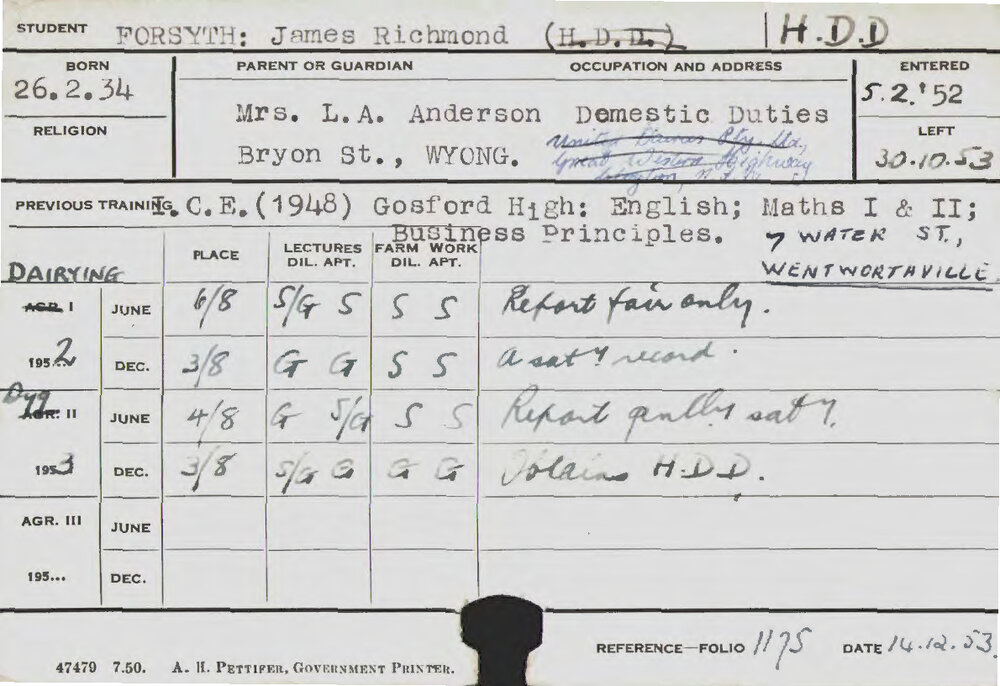 STUDENT FORSYTH: James Richmond (H.D.D.) H.D.D
BORN PARENT OR GUARDIAN OCCUPATION AND ADDRESS ENTERED
26.2.34 5.2.'52
Mrs. L.A. Anderson Domestic Duties
RELIGION LEFT
United Dairies Pty. Ltd,
Bryon St., WYONG. Great Western Highway 30.10.53
PREVIOUS TRAINING I.C.E.(1948) Gosford High: English; Maths I & II;
Business Principles. 7 WATER ST.,
WENTWORTHVILLE
PLACE LECTURES FARM WORK
DIL. APT. DIL. APT.
DAIRYING
AGR. I JUNE 6/8 S/G S S S Report fair only.
1952 DEC. 3/8 G G S S A sat y record.
Dyg
AGR. II JUNE 4/8 G S/G S S Report genlly sat y.
1953 DEC. 3/8 S/G G G G Obtains H.D.D.
AGR. III JUNE
195... DEC.
REFERENCE—FOLIO 1175 DATE 14.12.53
47479 7.50. A. H. PETTIFER, GOVERNMENT PRINTER.